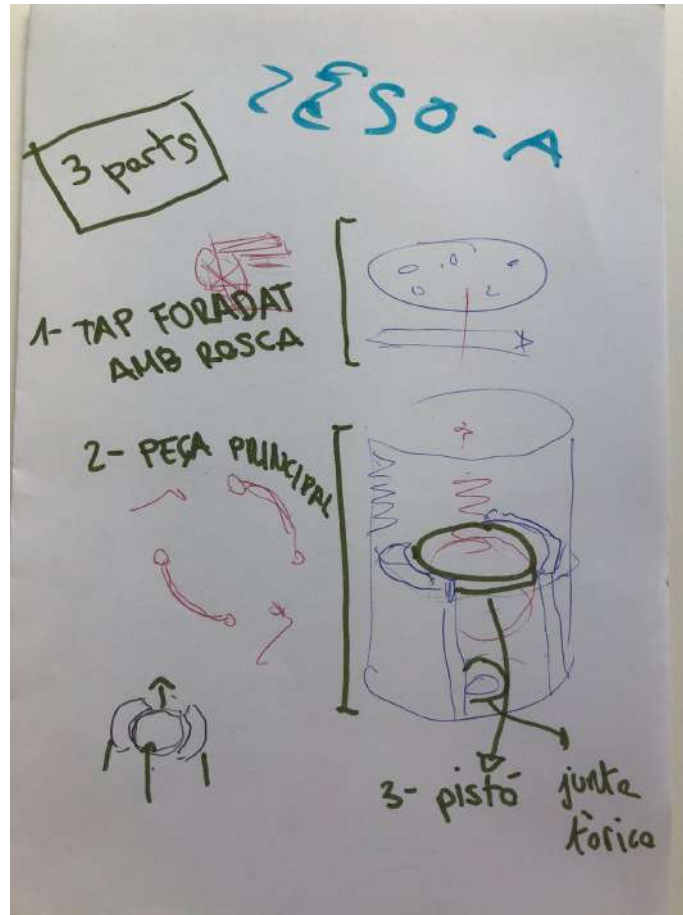 2ESO-A
3 parts
1- TAP FORADAT
AMB ROSCA
2- PEÇA PRINCIPAL
3- pistó
junta
tòrica